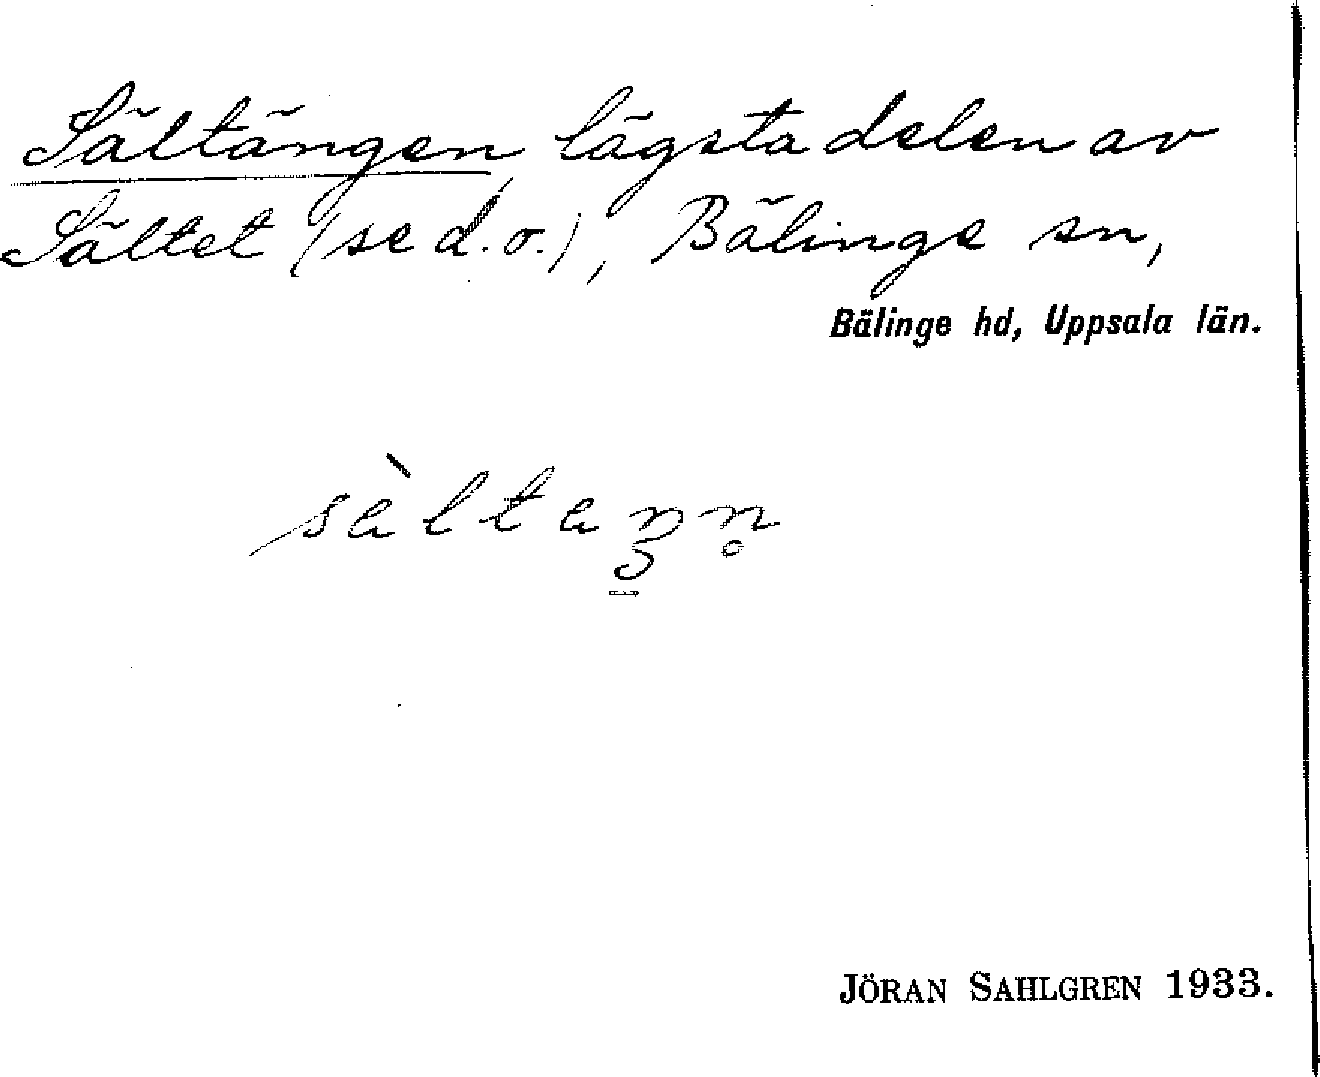 Sältängen, lägsta delen av
Sältet (se d.o.), Bälinge sn,
Bälinge hd, Uppsala län.
JÖRAN SAHLGREN 1933.